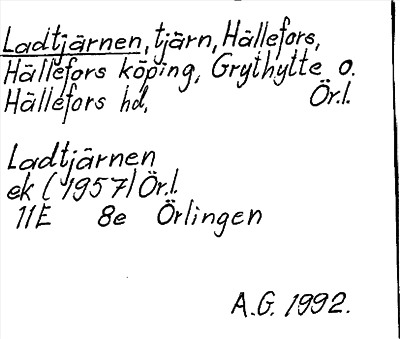 Ladtjärnen, tjärn, Hällefors,
Hällefors köping, Grythytte o.
Hällefors hd, Ör.l.
Ladtjärnen
ek (1957) Ör.l.
11E 8e Örlingen
A.G. 1992.